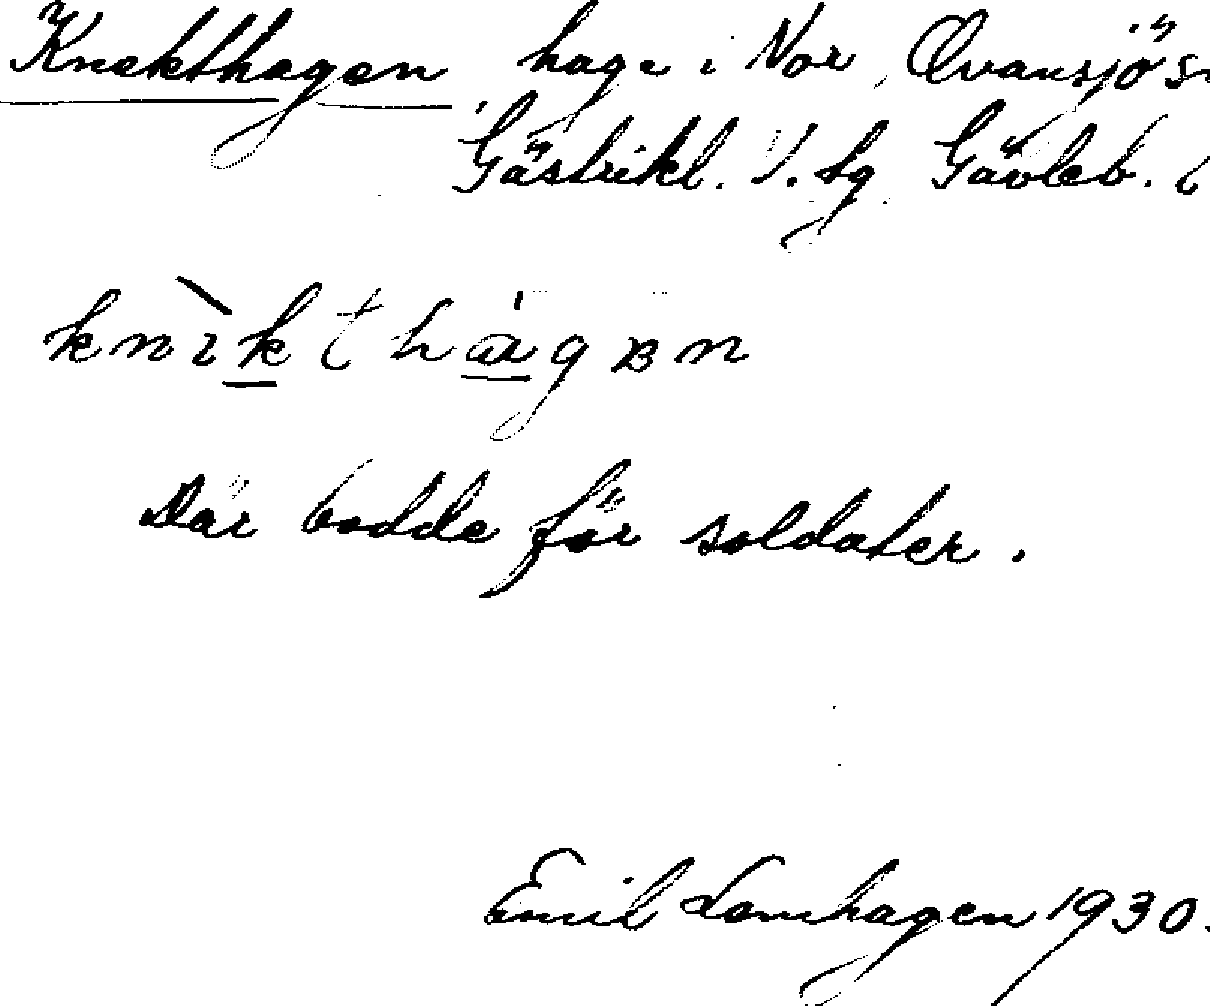 Knekthagen hage i Nor, Ovansjö sn
Gästrikl. V. tg Gävleb. l
knìkthágɐn
Där bodde för soldater.
Emil Lomhagen 1930.